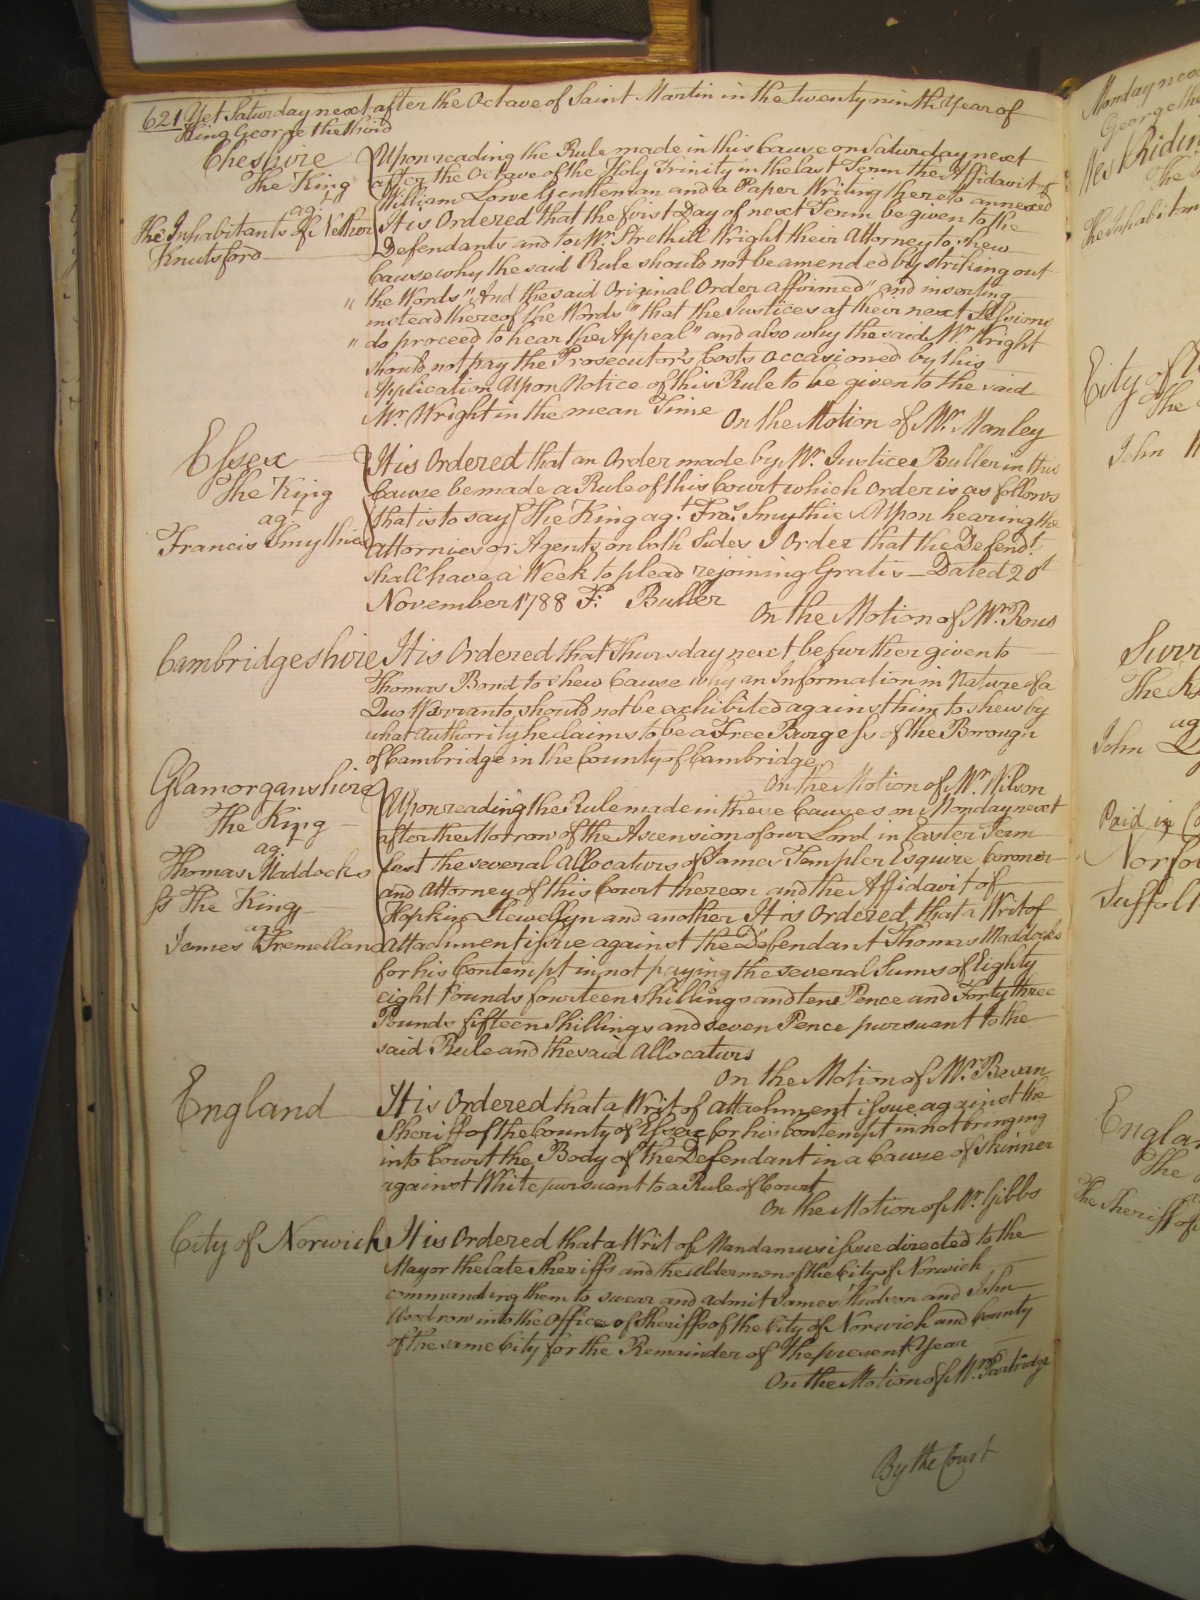 621 Yet Saturday next after the Octave of Saint Martin in the twenty ninth Year of
King George the third
Cheshire
The King
agt
The Inhabitants of Nether
Knutsford
Upon reading the Rule made in this Cause on Saturday next
after the Octave of the Holy Trinity in the last Term the Affidavit of
William Lowe Gentleman and a Paper Writing thereto annexed
It is Ordered that the first Day of next Term be given to the
Defendants and to Mr. Strethill Wright their Attorney to shew
Cause why the said Rule should not be amended by striking out
" the Words "And the said Original Order affirmed" and inserting
instead thereof the Words "that the Justices at their next Sessions
" do proceed to hear the Appeal" and also why the said Mr. Wright
should not pay the Prosecutor's Costs occasioned by this
Application Upon Notice of this Rule to be given to the said
Mr. Wright in the mean Time
On the Motion of Mr. Manley
Essex
The King
agt
Francis Smythies
It is Ordered that an Order made by Mr. Justice Buller in this
Cause be made a Rule of this Court which Order is as follows
that is to say The King agt. Fras. Smythie Upon hearing the
Attornies or Agents on both Sides I Order that the Defendt.
shall have a Week to plead rejoining Gratis — Dated 20t
November 1788 Fs. Buller
On the Motion of Mr. Rous
Cambridgeshire
It is Ordered that Thursday next be further given to
Thomas Bond to shew Cause why an Information in Nature of a
Quo Warranto should not be exhibited against him to shew by
what Authority he claims to be a Free Burgess of the Borough
of Cambridge in the County of Cambridge
On the Motion of Mr. Wilson
Glamorganshire
The King
agt
Thomas Maddocks
Ss The King
agt
James Tremellan
Upon reading the Rule made in these Causes on Monday next
after the Morrow of the Ascension of our Lord in Easter Term
last the several Allocaturs of James Templer Esquire Coroner
and Attorney of this Court thereon and the Affidavit of
Hopkin Llewellyn and another It is Ordered that a Writ of
Attachment issue against the Defendant Thomas Maddocks
for his Contempt in not paying the several Sums of Eighty
eight Pounds fourteen Shillings and ten Pence and Forty three
Pounds fifteen Shillings and seven Pence pursuant to the
said Rule and the said Allocaturs
On the Motion of Mr. Bevan
England
It is Ordered that a Writ of Attachment issue against the
Sheriff of the County of Essex for his Contempt in not bringing
into Court the Body of the Defendant in a Cause of Skinner
against White pursuant to a Rule of Court
On the Motion of Mr. Gibbs
City of Norwich
It is Ordered that a Writ of Mandamus issue directed to the
Mayor the late Sheriffs and the Aldermen of the City of Norwich
commanding them to swear and admit James Hudson and John
Woodrow into the Office of Sheriffs of the City of Norwich and County
of the same City for the Remainder of the present Year
On the Motion of Mr. Partridge
By the Court
Monday next
George the
West Riding
The
The Inhabitan
City of
The
John
Surr
The K
ag
John
Paid in Co
Norfol
Suffolk
Englan
The
The Sheriff of